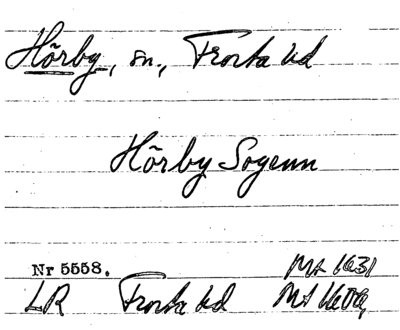 Hörby, sn., Frosta hd
Hörby Sogenn
Nr 5558. Ms 1631
LR Frosta hd Ms